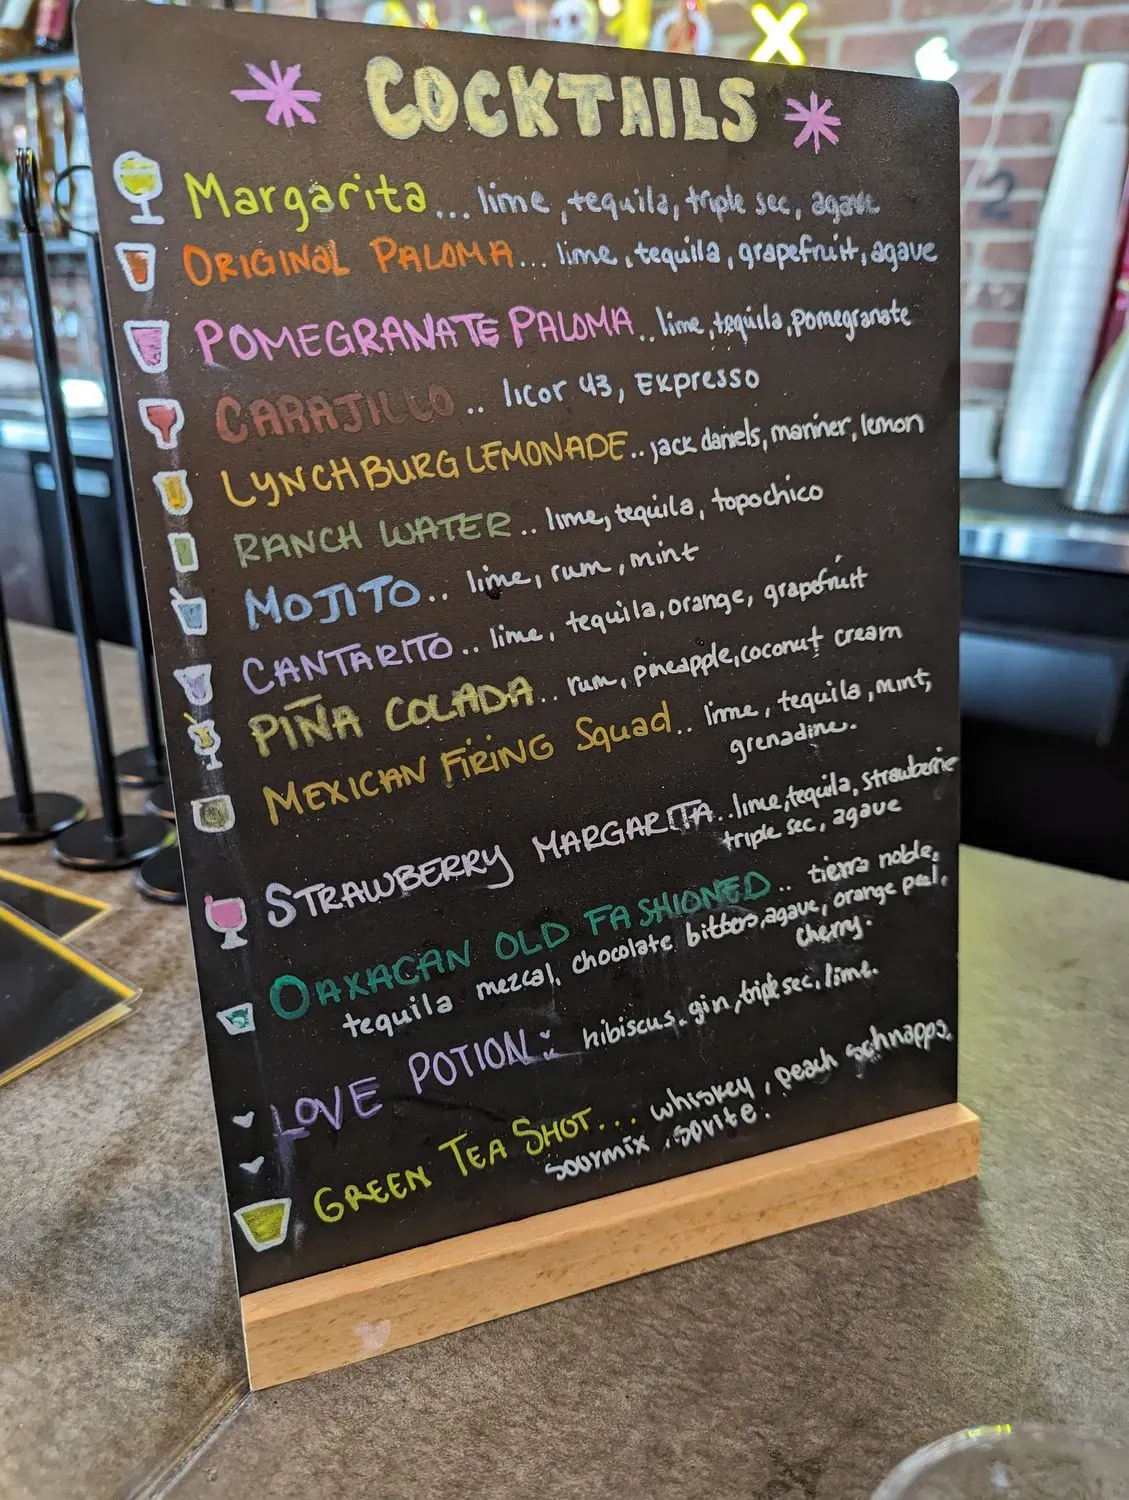 COCKTAILS
Margarita... lime, tequila, triple sec, agave
ORIGINAL PALOMA... lime, tequila, grapefruit, agave
POMEGRANATE PALOMA.. lime, tequila, pomegranate
CARAJILLO.. licor 43, Expresso
LYNCHBURG LEMONADE.. jack daniels, mariner, lemon
RANCH WATER.. lime, tequila, topochico
MOJITO.. lime, rum, mint
CANTARITO.. lime, tequila, orange, grapefruit
PIÑA COLADA.. rum, pineapple, coconut cream
MEXICAN FIRING Squad.. lime, tequila, mint,
grenadine.
STRAWBERRY MARGARITA.. lime, tequila, strawberrie
triple sec, agave
OAXACAN OLD FASHIONED.. tierra noble,
tequila mezcal, chocolate bitters, agave, orange peel,
cherry.
LOVE POTION: hibiscus, gin, triple sec, lime.
GREEN TEA SHOT... whiskey, peach schnapps,
sourmix, sprite.
X
2